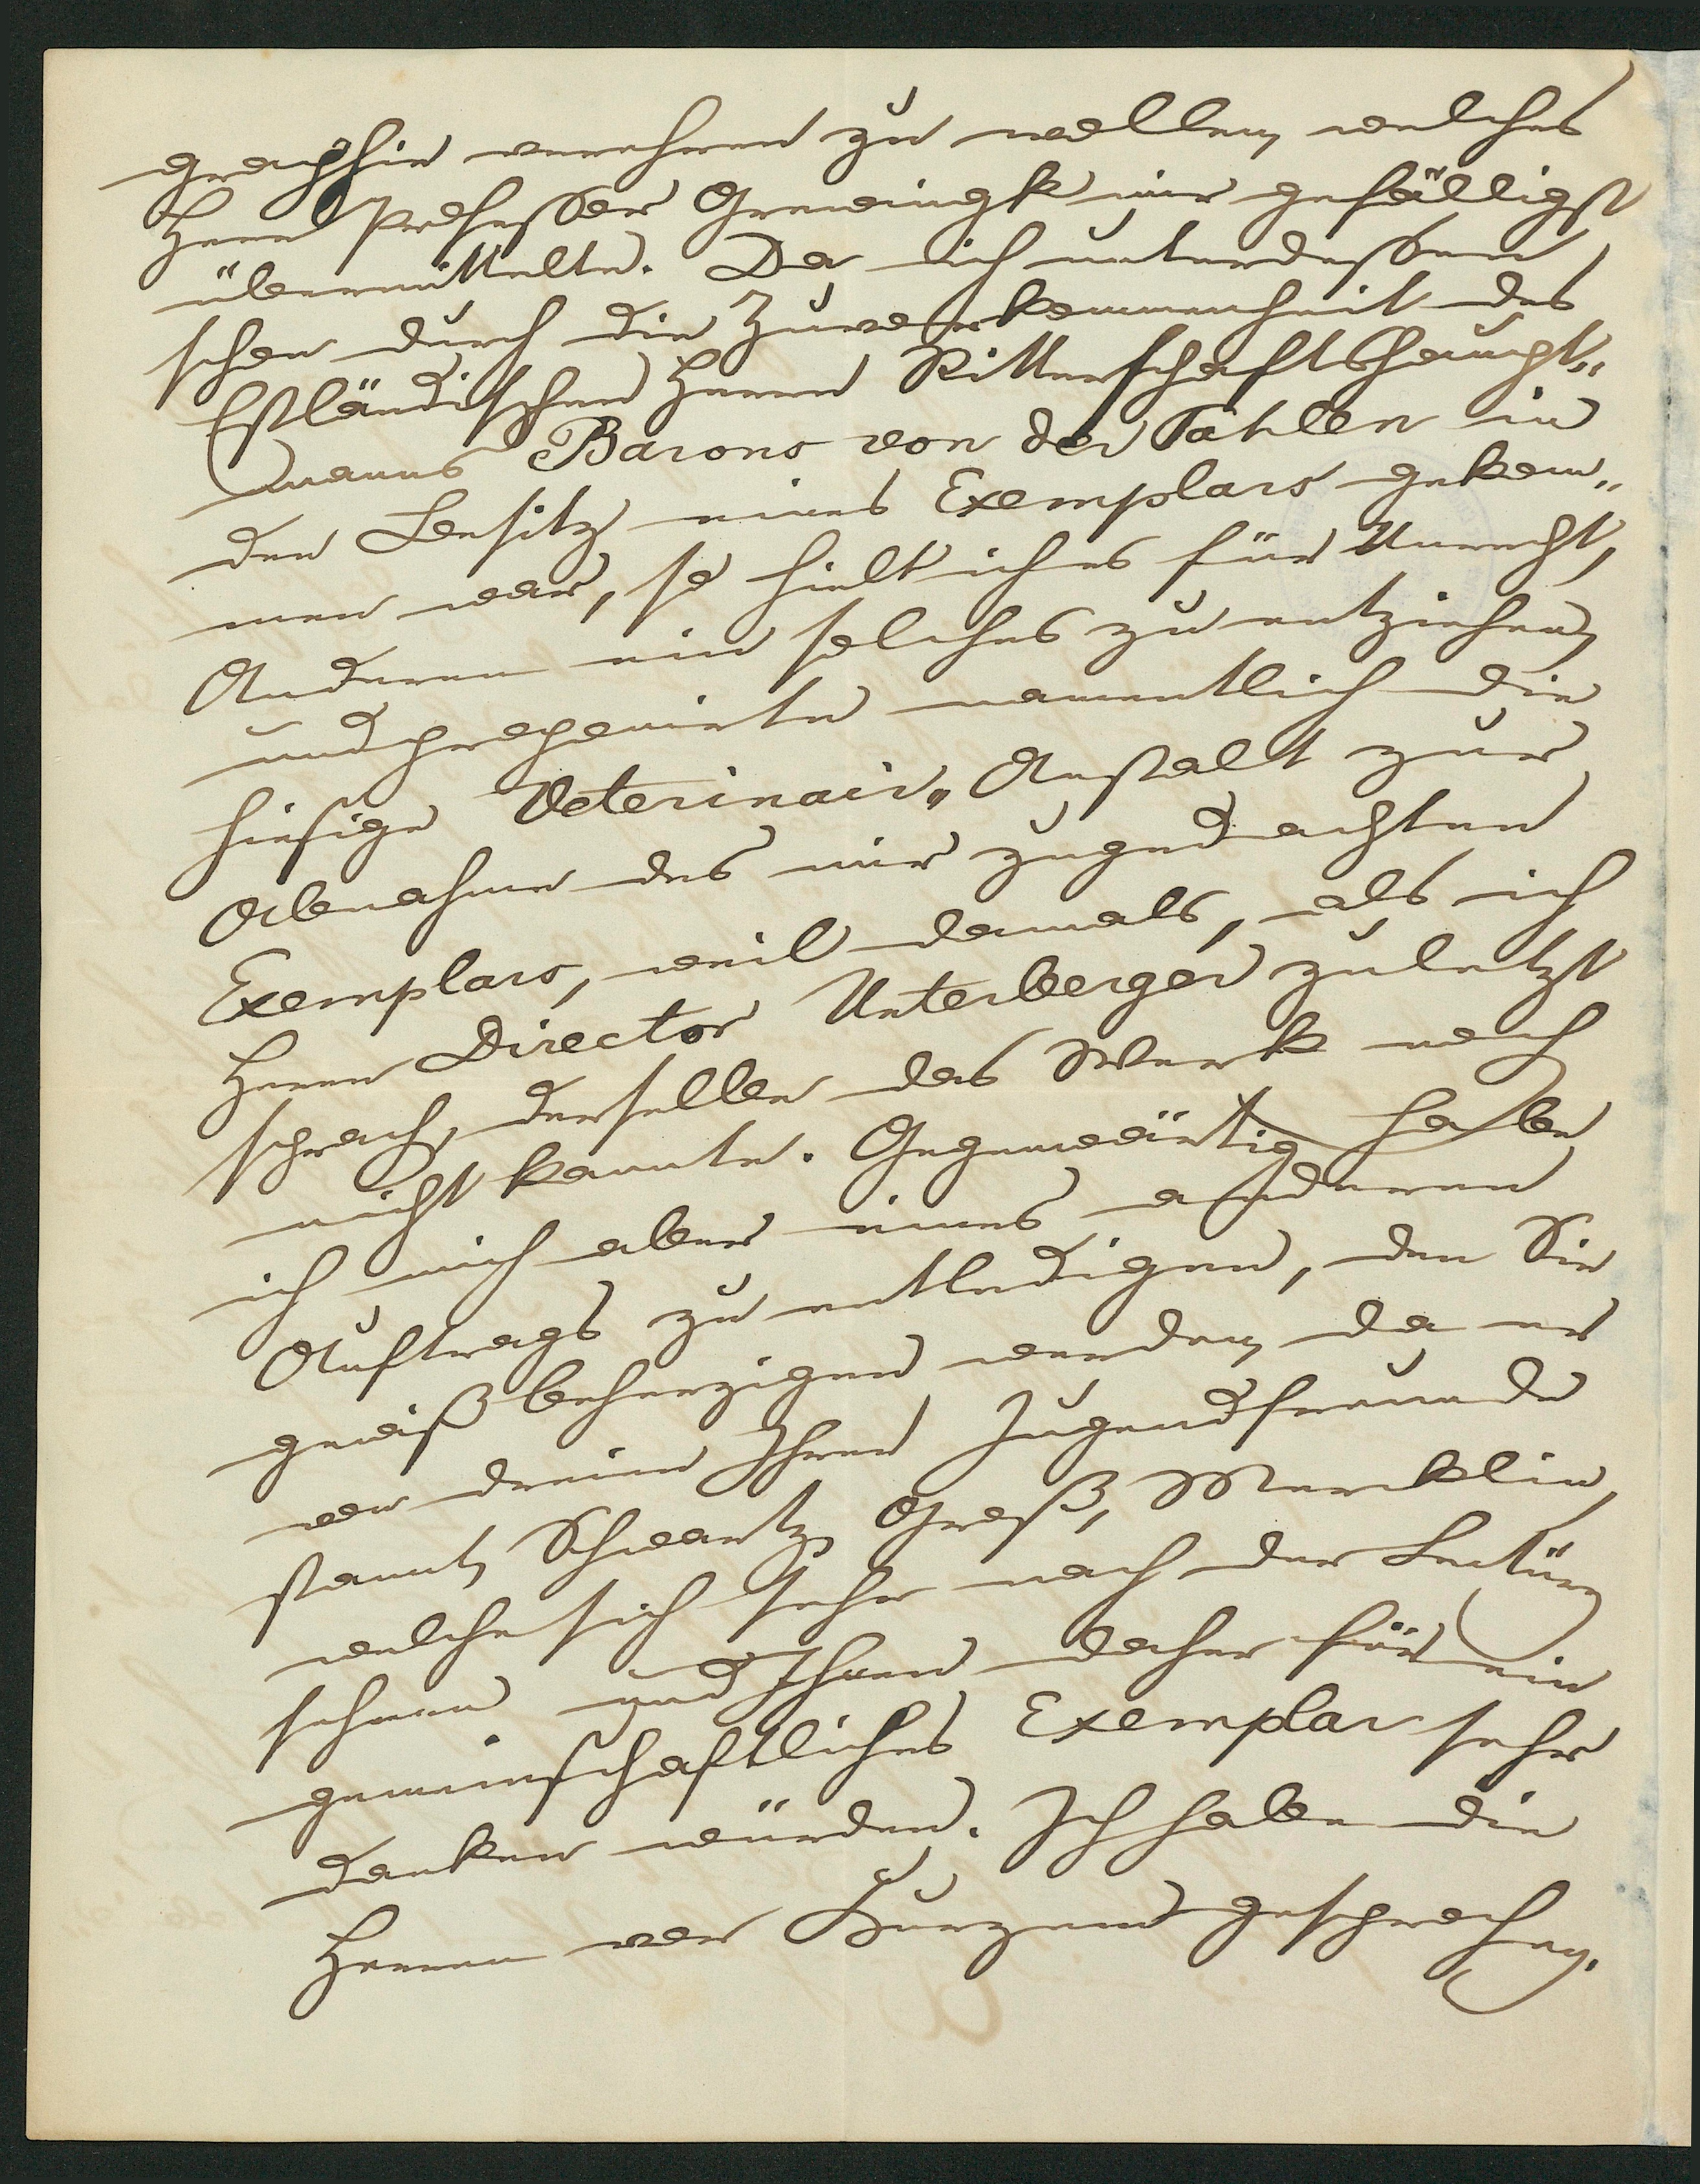 graphie verehren zu wollen, welches
Herr Professor Grewingk mir gefälligst
übermittelte. Da ich unterdessen
schon durch die Zuvorkommenheit des
Estländischen Herrn Ritterschaftshaupt„
manns Barons von der Pahlen in
den Besitz eines Exemplars gekom„
men war, so hielt ich es für Unrecht,
Anderen ein solches zu entziehen,
und proponirte namentlich die
hiesige Veterinair„Anstalt zur
Abnahme des mir zugedachten
Exemplars, weil damals, als ich
Herrn Director Unterberger zuletzt
sprach, derselbe das Werk noch
nicht kannte. Gegenwärtig habe
ich mich aber eines anderen
Auftrags zu entledigen, den Sie
gewiß beherzigen werden, da er
von dreien Ihren Jugendfreunde
stamt, Schwartz, Groß, Mercklin,
welche sich sehr nach der Lectüre
sehnen und Ihnen daher für ein
gemeinschaftliches Exemplar sehr
danken würden. Ich habe die
Herren vor Kurzem gesprochen.